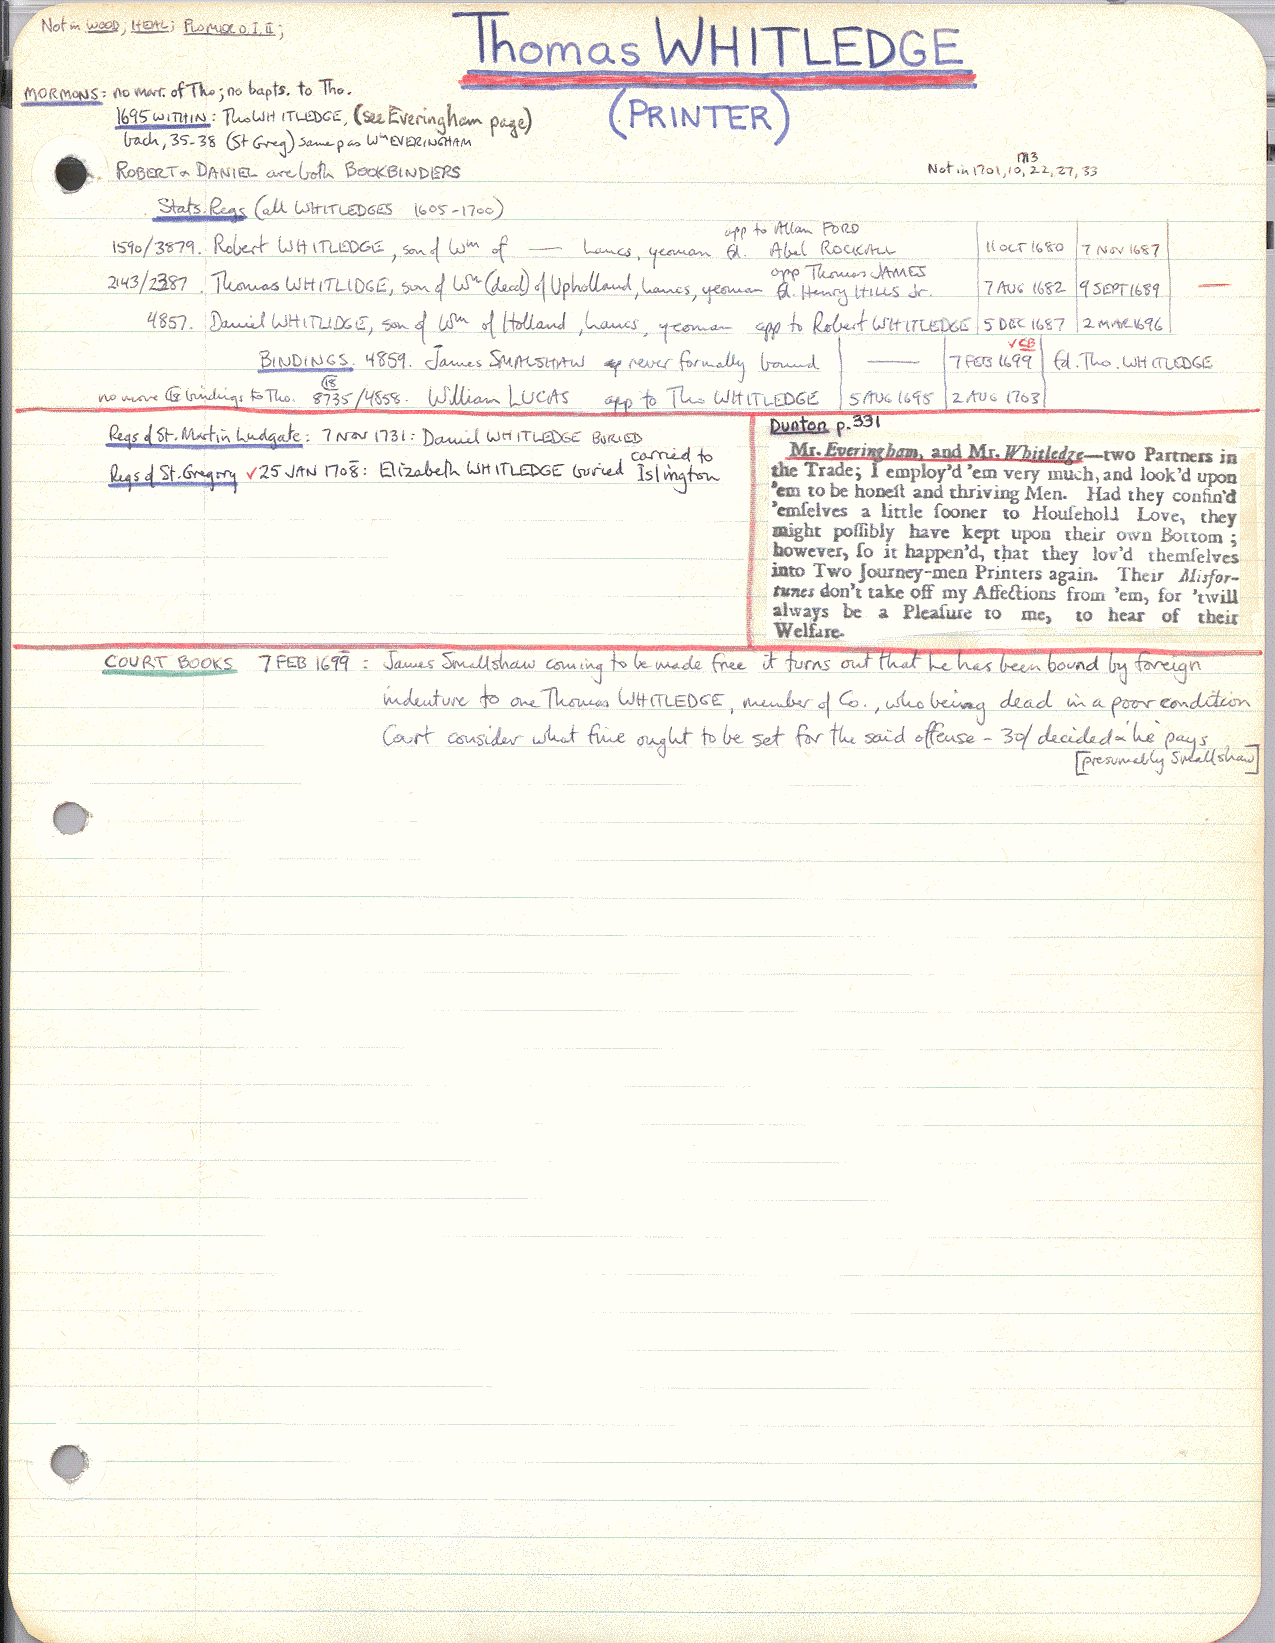 Not in WOOD, HEAL; PLOMER O, I, II;
Thomas WHITLEDGE
(PRINTER)
MORMONS: no marr. of Tho; no bapts. to Tho.
1695 WITHIN: Tho WHITLEDGE, (see Everingham page)
bach, 35-38 (St Greg) same p as Wm EVERINGHAM
ROBERT & DANIEL are both BOOKBINDERS
Not in 1701, 10, 22, 27, 33
Stats. Regs (all WHITLEDGES 1605-1700)
app to Allan FORD
1590/3879. Robert WHITLEDGE, son of Wm of — Lancs, yeoman fd. Abel ROCKALL 11 OCT 1680 7 NOV 1687
app Thomas JAMES
2143/2387. Thomas WHITLIDGE, son of Wm (decd) of Upholland, Lancs, yeoman fd. Henry HILLS Jr. 7 AUG 1682 9 SEPT 1689 —
4857. Daniel WHITLIDGE, son of Wm of Holland, Lancs, yeoman app to Robert WHITLEDGE 5 DEC 1687 2 MAR 1696
✓CB
BINDINGS. 4859. James SMALSHAW never formally bound — 7 FEB 1699 fd. Tho. WHITLEDGE
18
no more 18 bindings to Tho. 8735/4858. William LUCAS app to Tho WHITLEDGE 5 AUG 1695 2 AUG 1703
Regs of St. Martin Ludgate: 7 NOV 1731: Daniel WHITLEDGE BURIED
Regs of St. Gregory ✓25 JAN 1708: Elizabeth WHITLEDGE buried carried to Islington
Dunton p.331
Mr. Everingham, and Mr. Whitledge—two Partners in
the Trade; I employ'd 'em very much, and look'd upon
'em to be honeſt and thriving Men. Had they confin'd
'emſelves a little ſooner to Houſehold Love, they
might poſſibly have kept upon their own Bottom;
however, ſo it happen'd, that they lov'd themſelves
into Two Journey-men Printers again. Their Misfor-
tunes don't take off my Affections from 'em, for 'twill
always be a Pleaſure to me, to hear of their
Welfare.
COURT BOOKS 7 FEB 1699: James Smallshaw coming to be made free it turns out that he has been bound by foreign
indenture to one Thomas WHITLEDGE, member of Co., who being dead in a poor condition
Court consider what fine ought to be set for the said offense - 30/ decided & he pays
[presumably Smallshaw]